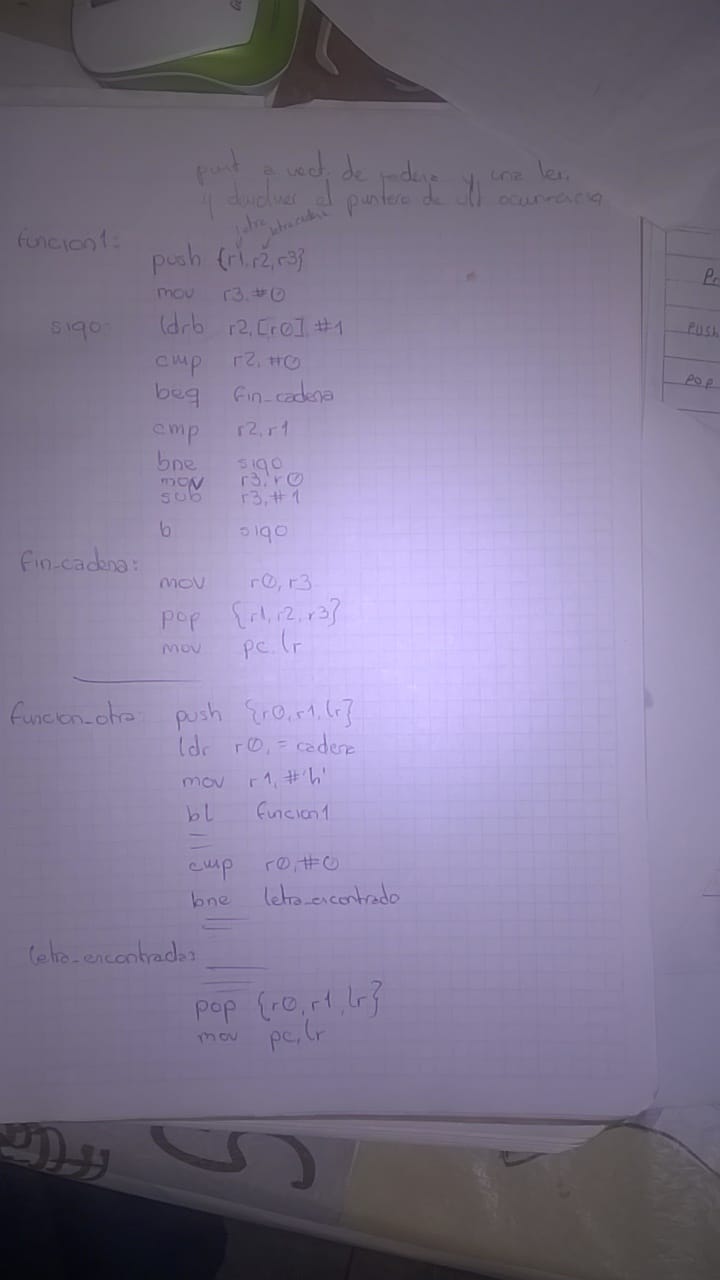 punt a vect. de cadena y una let.
y devolver el puntero de ult ocurrencia
letra letra cadena
funcion1:
push {r1,r2,r3}
mov r3,#0
sigo: ldrb r2,[r0],#1
cmp r2,#0
beq fin_cadena
cmp r2,r1
bne sigo
mov r3,r0
sub r3,#1
b sigo
fin-cadena:
mov r0,r3
pop {r1,r2,r3}
mov pc,lr
funcion_otra: push {r0,r1,lr}
ldr r0,=cadena
mov r1,#'h'
bl funcion1
cmp r0,#0
bne letra_encontrado
letra_encontrada:
pop {r0,r1,lr}
mov pc,lr
push
pop